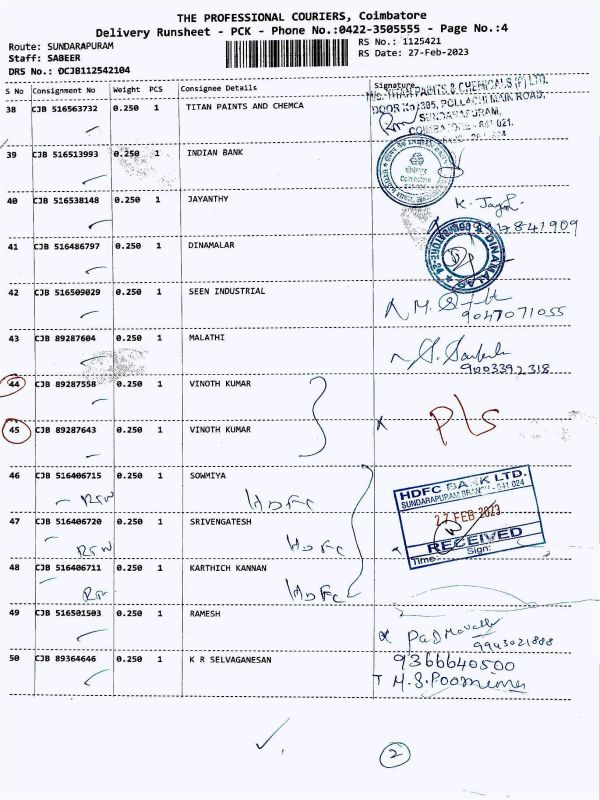 THE PROFESSIONAL COURIERS, Coimbatore
Delivery Runsheet - PCK - Phone No.:0422-3505555 - Page No.:4
Route: SUNDARAPURAM
RS No.: 1125421
Staff: SABEER
RS Date: 27-Feb-2023
DRS No.: DCJB112542104
S No Consignment No Weight PCS Consignee Details Signature
38 CJB 516563732 0.250 1 TITAN PAINTS AND CHEMCA
M/s. TITAN PAINTS & CHEMICALS (P) LTD.
DOOR No:395, POLLACHI MAIN ROAD,
SUNDARAPURAM,
COIMBATORE - 641 021.
39 CJB 516513993 0.250 1 INDIAN BANK
Coimbatore
40 CJB 516538148 0.250 1 JAYANTHY
41 CJB 516486797 0.250 1 DINAMALAR
DINAMALAR
42 CJB 516509029 0.250 1 SEEN INDUSTRIAL
9047071055
43 CJB 89287604 0.250 1 MALATHI
9003392318
44 CJB 89287558 0.250 1 VINOTH KUMAR
45 CJB 89287643 0.250 1 VINOTH KUMAR
P/s
46 CJB 516406715 0.250 1 SOWMIYA
HDFC
HDFC BANK LTD.
SUNDARAPURAM BRANCH - 641 024
27 FEB 2023
RECEIVED
Time: Sign:
47 CJB 516406720 0.250 1 SRIVENGATESH
HDFC
48 CJB 516406711 0.250 1 KARTHICH KANNAN
HDFC
49 CJB 516501503 0.250 1 RAMESH
9943021888
50 CJB 89364646 0.250 1 K R SELVAGANESAN
9366640500
M.S.Poornima
2